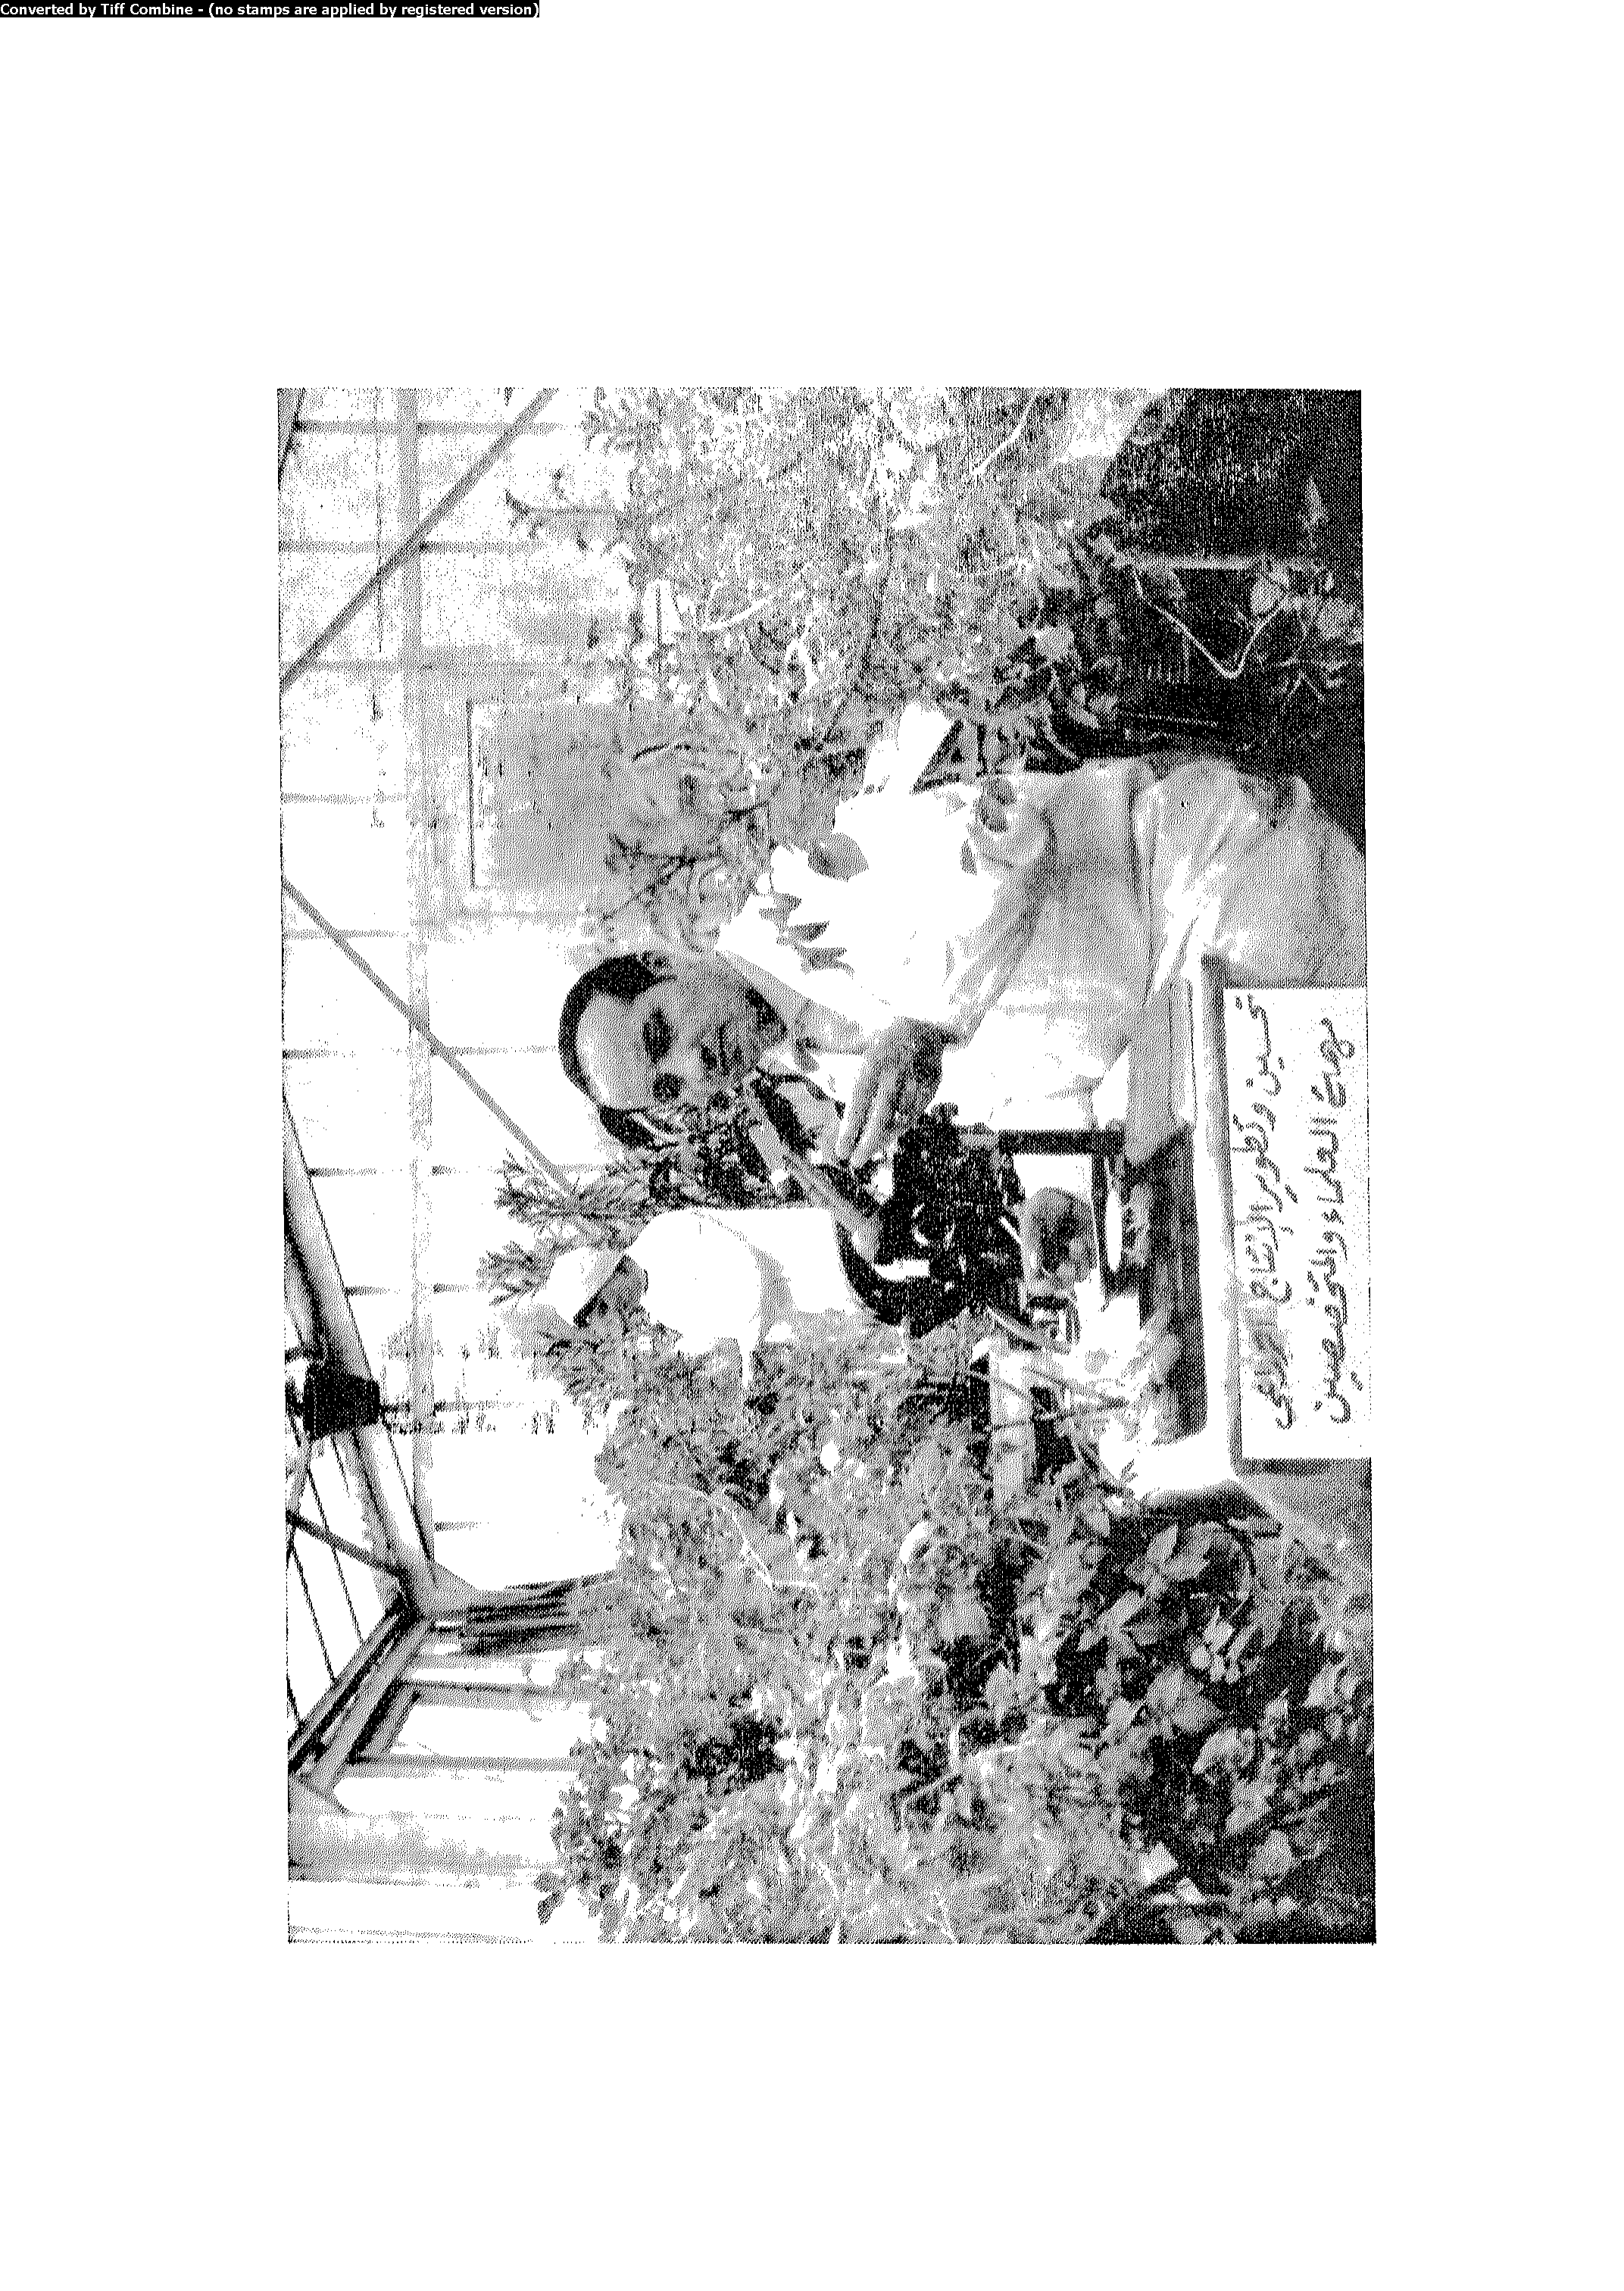 Converted by Tiff Combine - (no stamps are applied by registered version)
تحسين وتطوير الإنتاج الزراعي
مهمة العلماء والمتخصصين